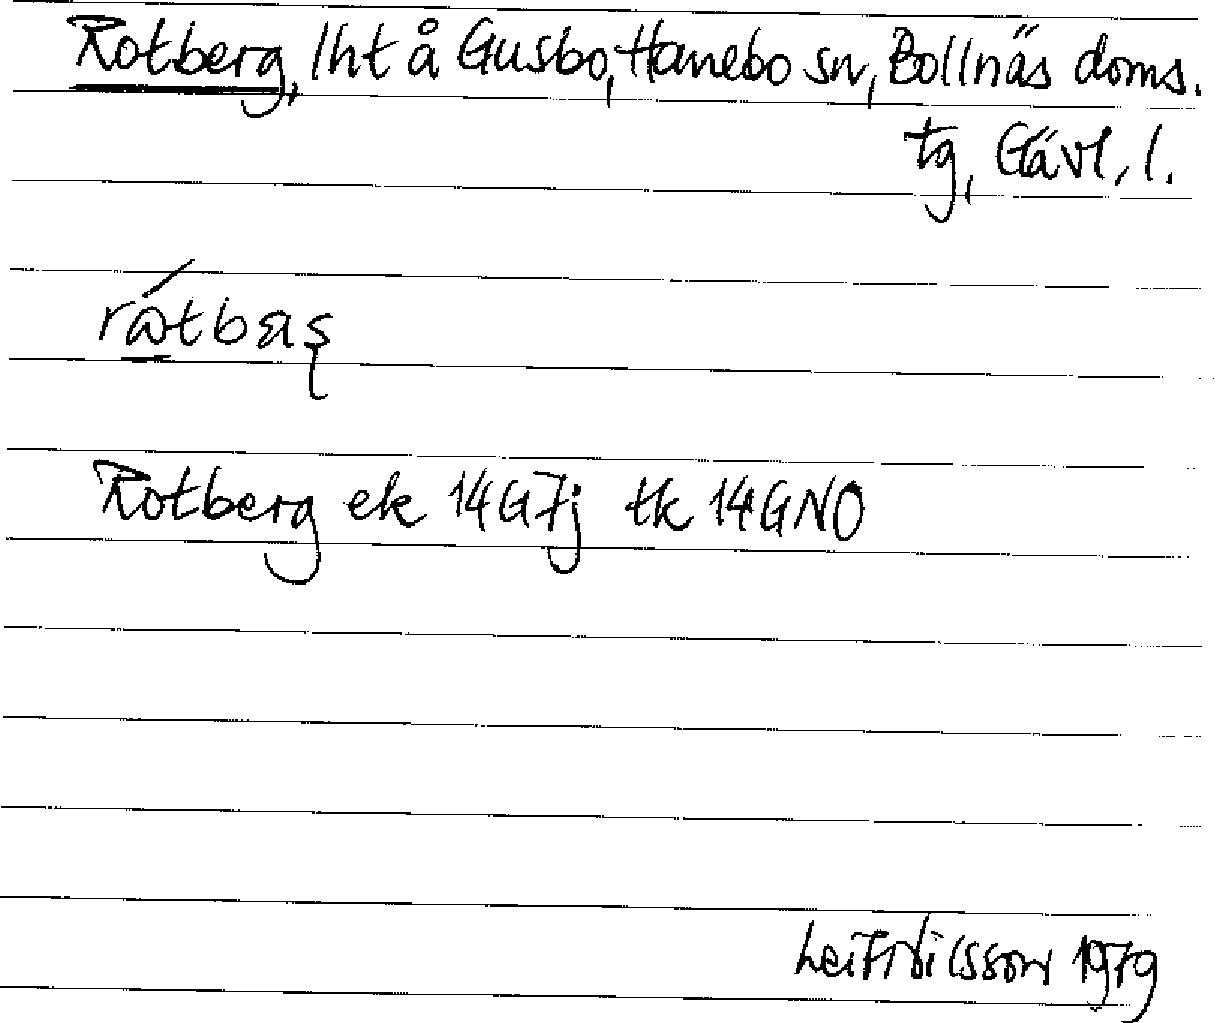 Rotberg, lht å Gusbo, Hanebo sn, Bollnäs doms.
tg, Gävl. l.
Rotberg ek 14G7j tk 14GNO
Leif Nilsson 1979